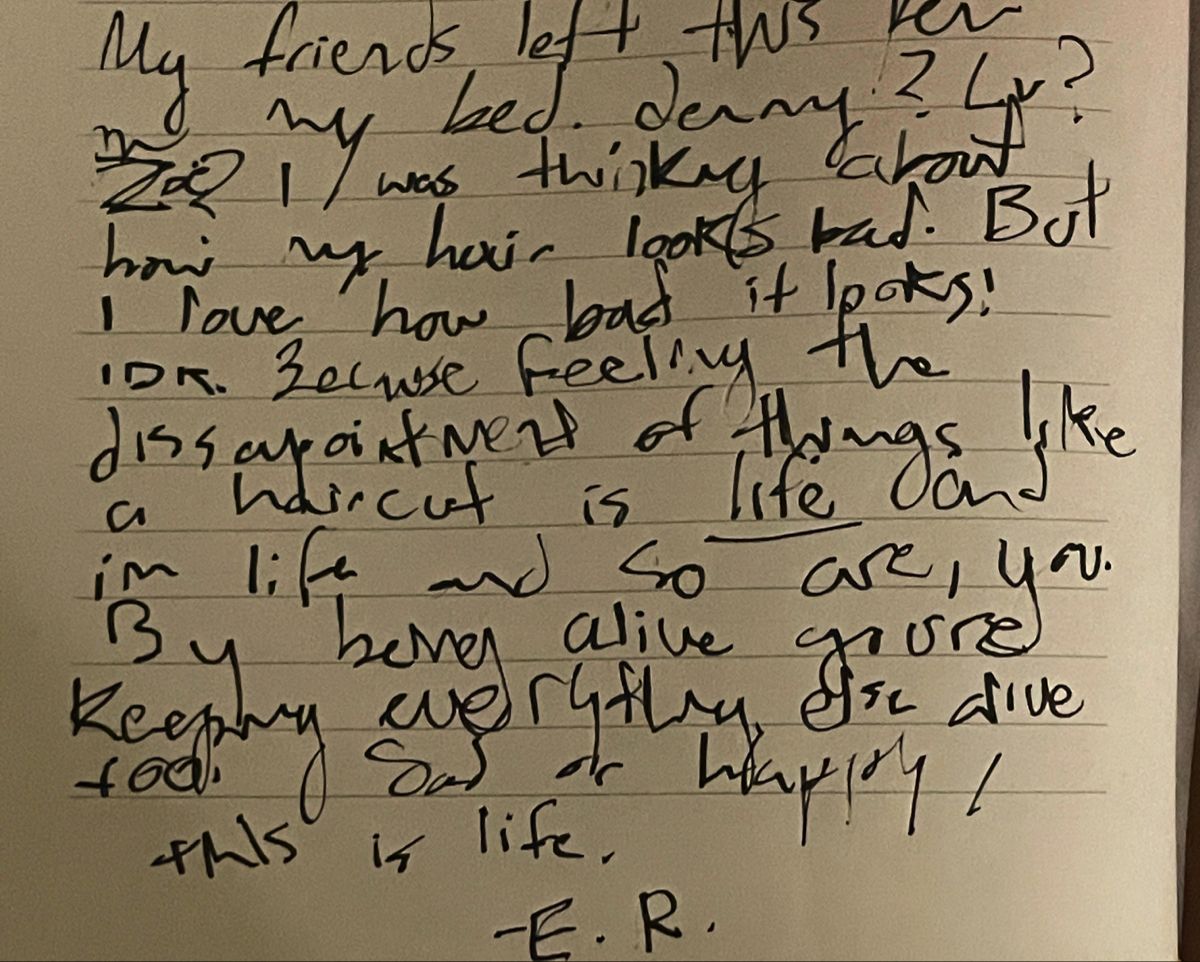 My friends left this pen
in my bed. Jenny? Lv?
Zoe? I was thinking about
how my hair looks bad. But
I love how bad it looks!
IDK. Becuase feeling the
dissapointment of things like
a haircut is life and
im life and so are, you.
By being alive youre
keeping everything else alive
too. Sad or happy,
this is life.
-E. R.